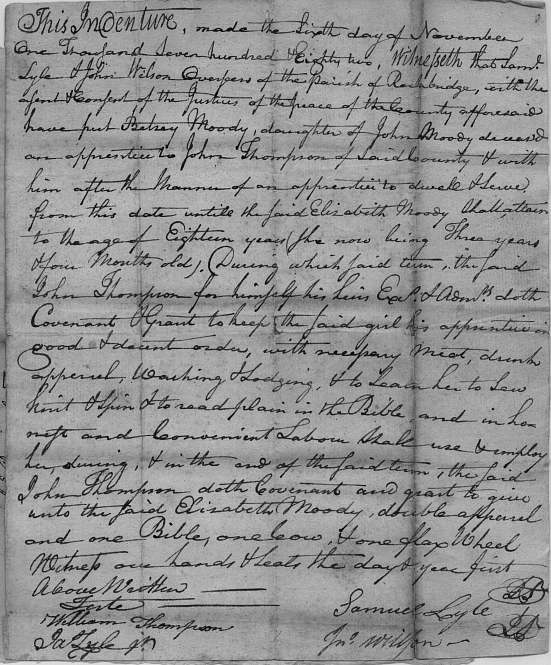 This Indenture, made the Sixth day of November
One Thousand Seven hundred & Eighty two, Witnesseth that Saml
Lyle & John Wilson Overseers of the Parish of Rockbridge, with the
asent & Consent of the Justices of the peace of the County aforesaid
have put Betsey Moody, daughter of John Moody deceased
an apprentice to John Thompson of said County & with
him after the Manner of an apprentice to dwell & Serve,
from this date untill the said Elizabeth Moody Shall attain
to the age of Eighteen years (she now being Three years
& four Months old). During which said term, the said
John Thompson for himself his heirs Exrs. & Admrs. doth
Covenant & Grant to keep the said girl his apprentice in
good & decent order, with necessary Meat, drink
apperrel, Washing & Lodging, & to Learn her to Sew
knit & Spin & to read plain in the Bible, and in ho=
nest and Convenient Labour Shall use & employ
her, during, & in the end of the said term, the said
John Thompson doth Covenant and grant to give
unto the said Elisabeth Moody, double apperrel
and one Bible, one Cow, & one flax Wheel
Witness our hands & seals the day & year first
Above Written
Teste
William Thompson
Samuel Lyle LS
Jas Lyle Jr.
Jno. Wilson LS